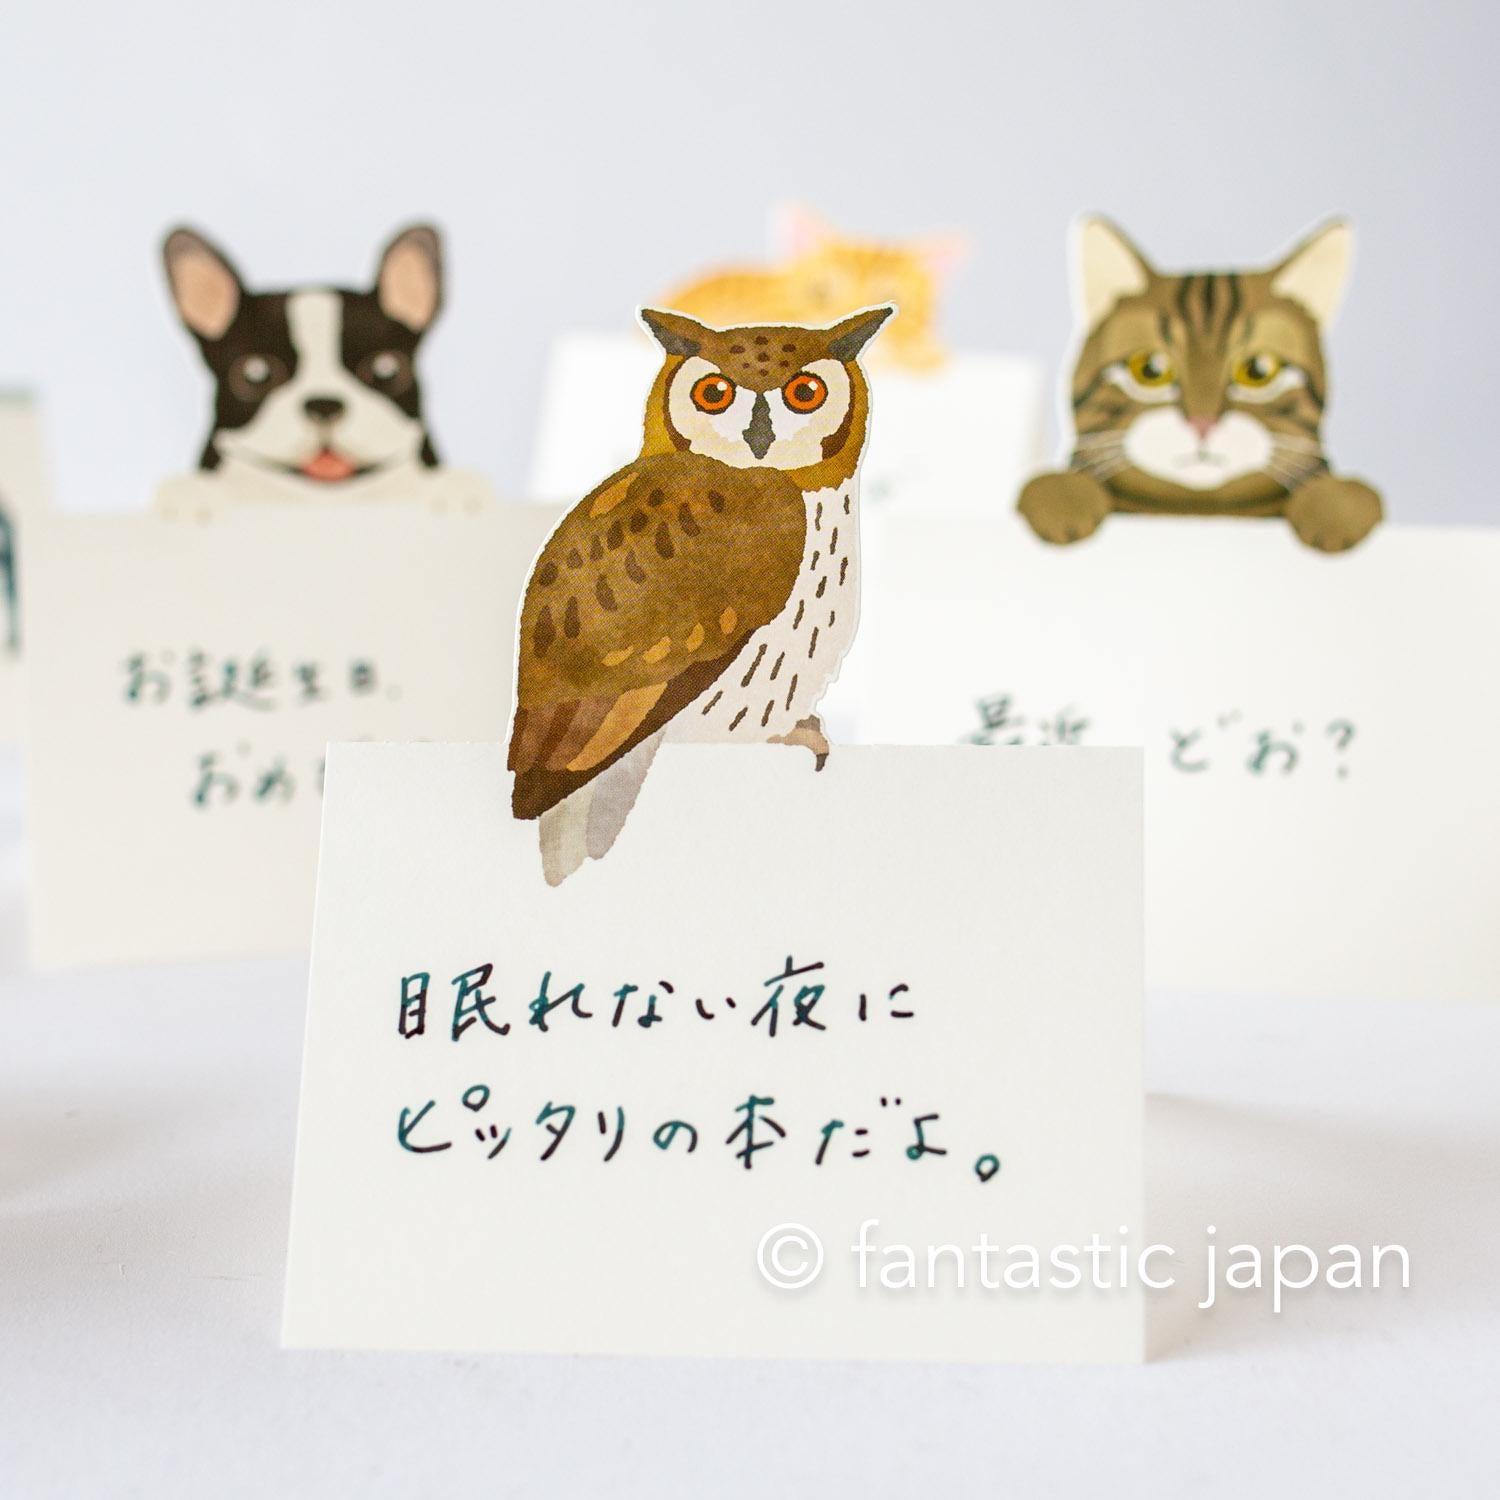 お誕生日、
おめ
最近 どお?
眠れない夜に
ピッタリの本だよ。
© fantastic japan